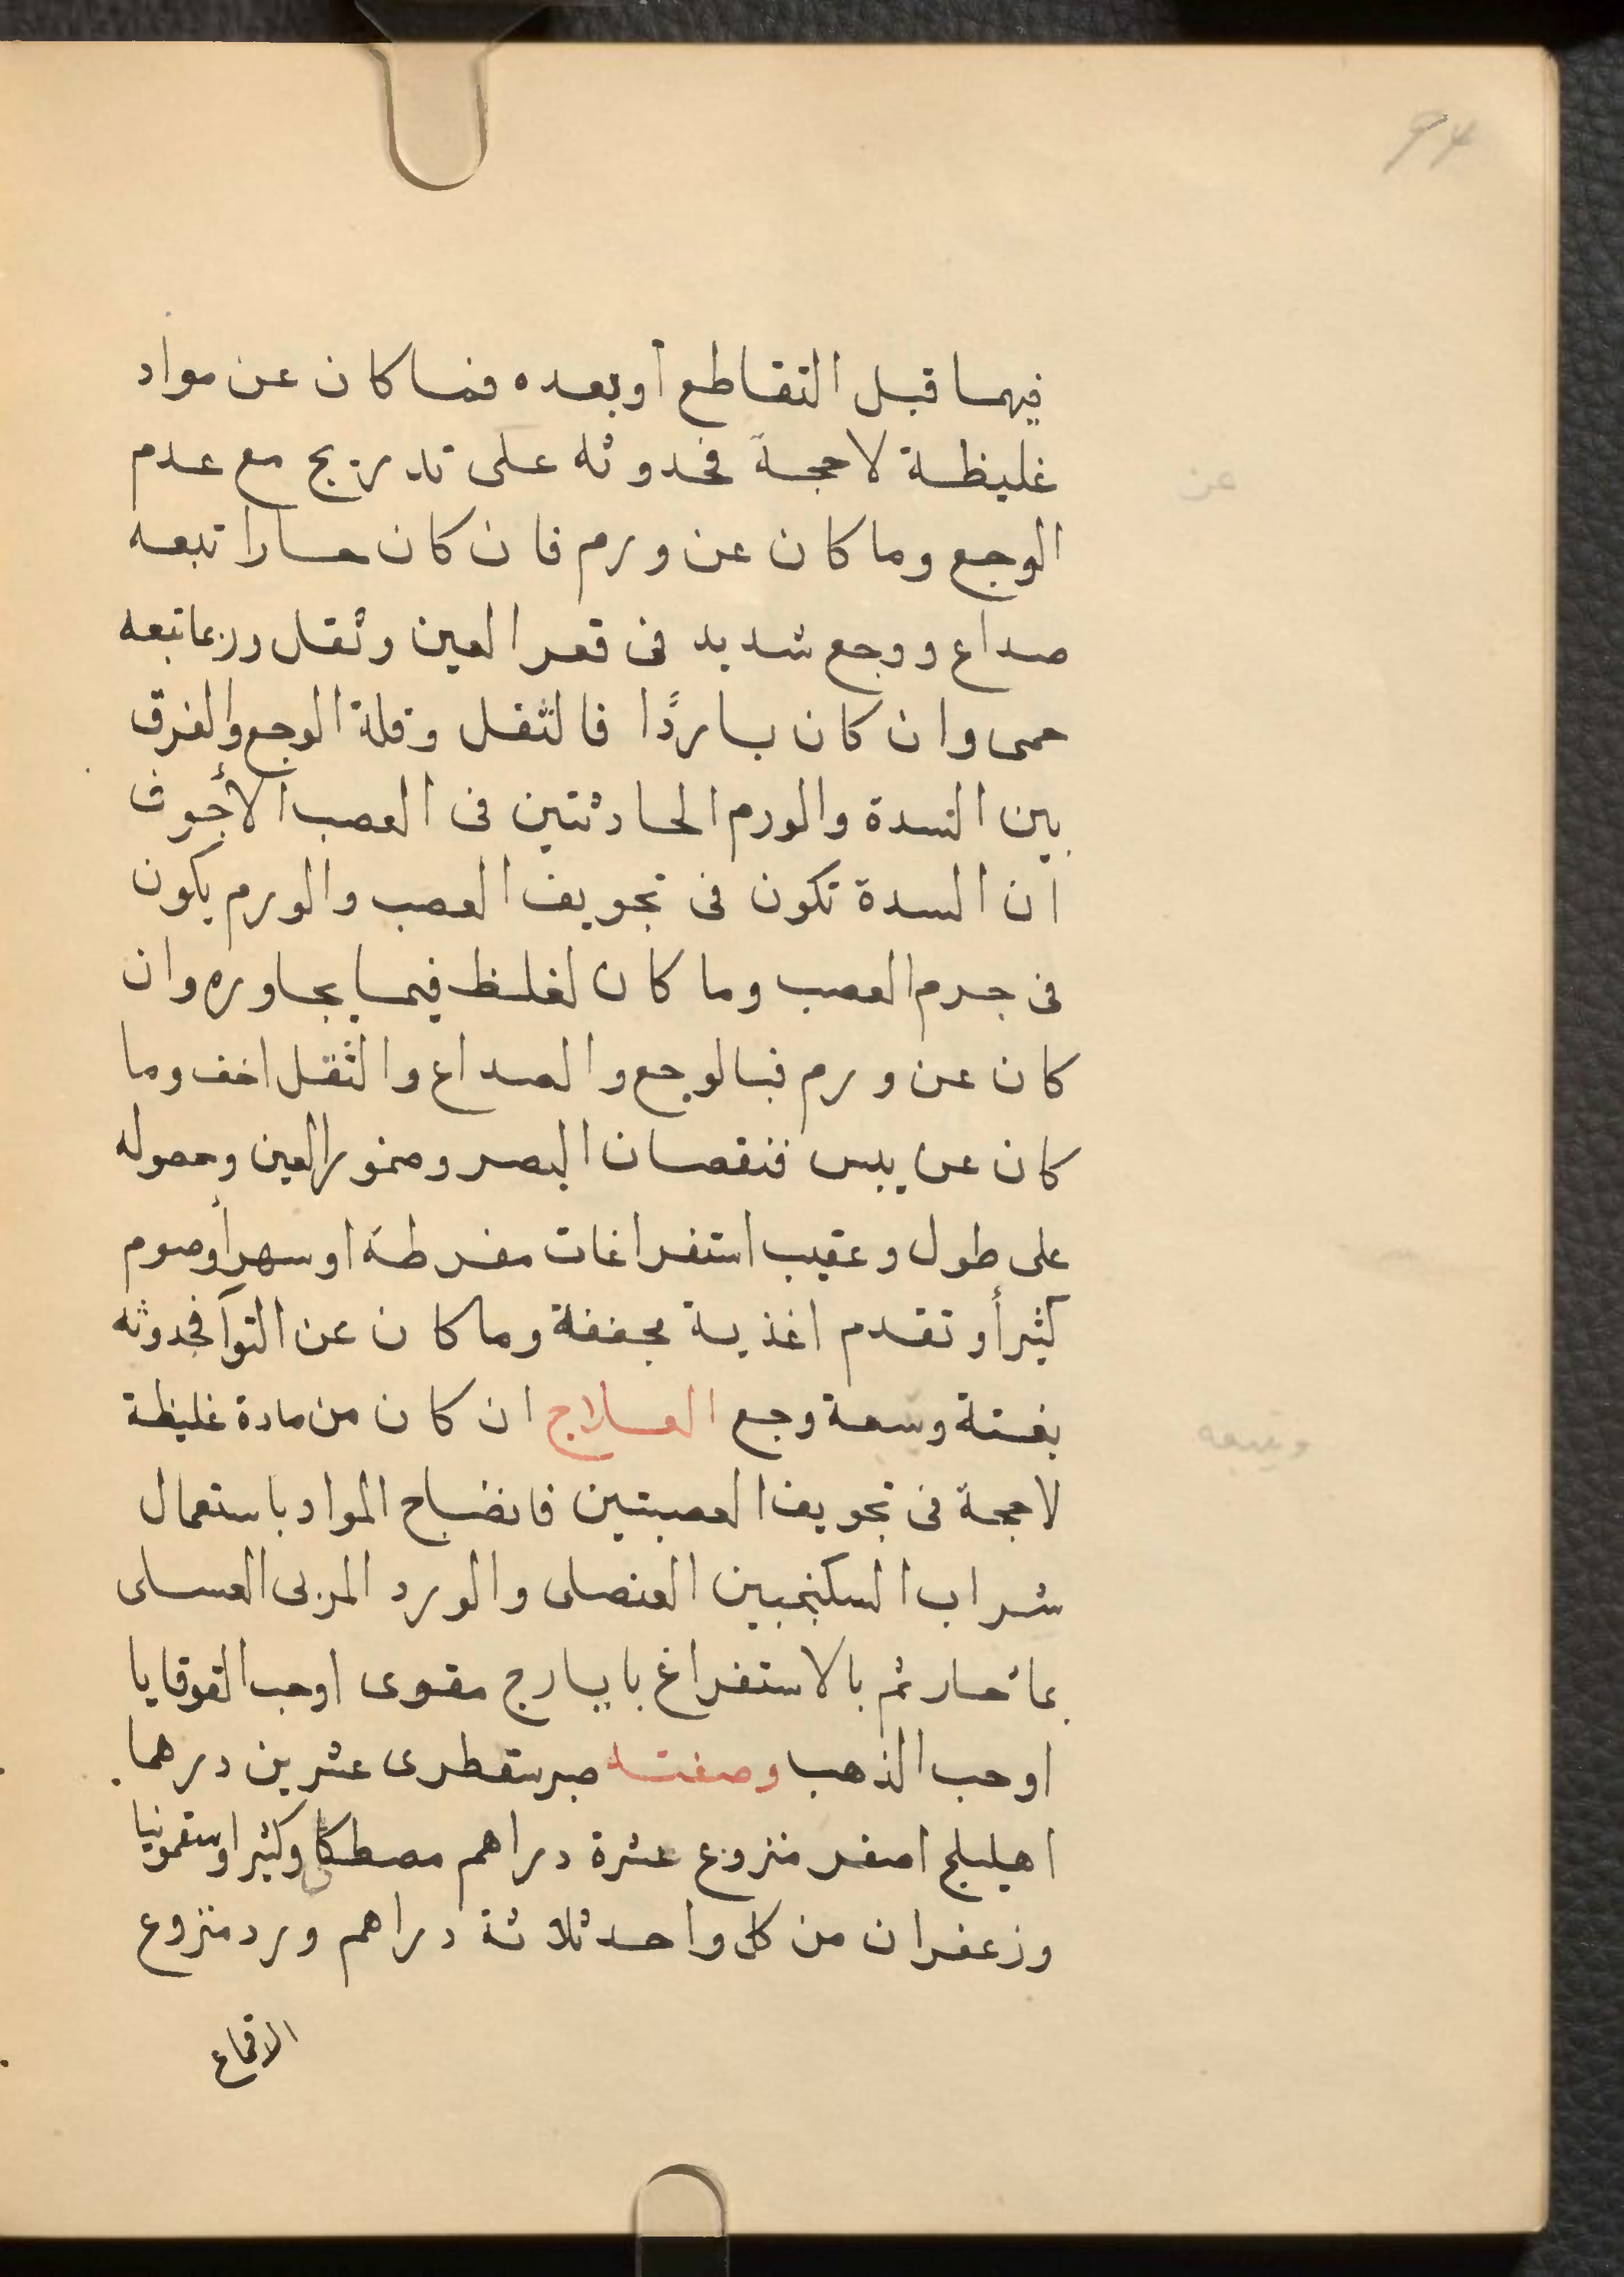 94
فيهما قبل التقاطع أو بعده فما كان عن مواد
غليظة لاحجة فحدوثه على تدريج مع عدم
عن
الوجع وما كان عن ورم فان كان حارا تبعه
صداع ووجع شديد فى قعر العين وثقل وربما تبعه
حمى وان كان باردًا فالثقل وقلة الوجع والفرق
بين السدة والورم الحادثتين فى العصب الأجوف
ان السدة تكون فى تجويف العصب والورم يكون
فى جرم العصب وما كان لغلظ فيما يجاوره وان
كان عن ورم فبالوجع والصداع والثقل اخف وما
كان عن يبس فنقصان البصر وضمور العين وحصوله
على طول وعقيب استفراغات مفرطة او سهر أو صوم
كثير أو تقدم اغذية مجففة وما كان عن التوآ فحدوثه
بغتة وسعة وجع العلاج ان كان من مادة غليظة
ويتبعه
لاحجة فى تجويف العصبتين فانضاح المواد باستعمال
شراب السكنجبين العنصلى والورد المربى العسلى
بمائحار ثم بالاستفراغ بايارج مقوى اوحب القوقايا
اوحب الذهب وصفته صبر سقطرى عشرين درهما
اهليلج اصفر منزوع عشرة دراهم مصطكا وكثيرا وسقمونيا
وزعفران من كل واحد ثلاثة دراهم ورد منزوع
الاقماع